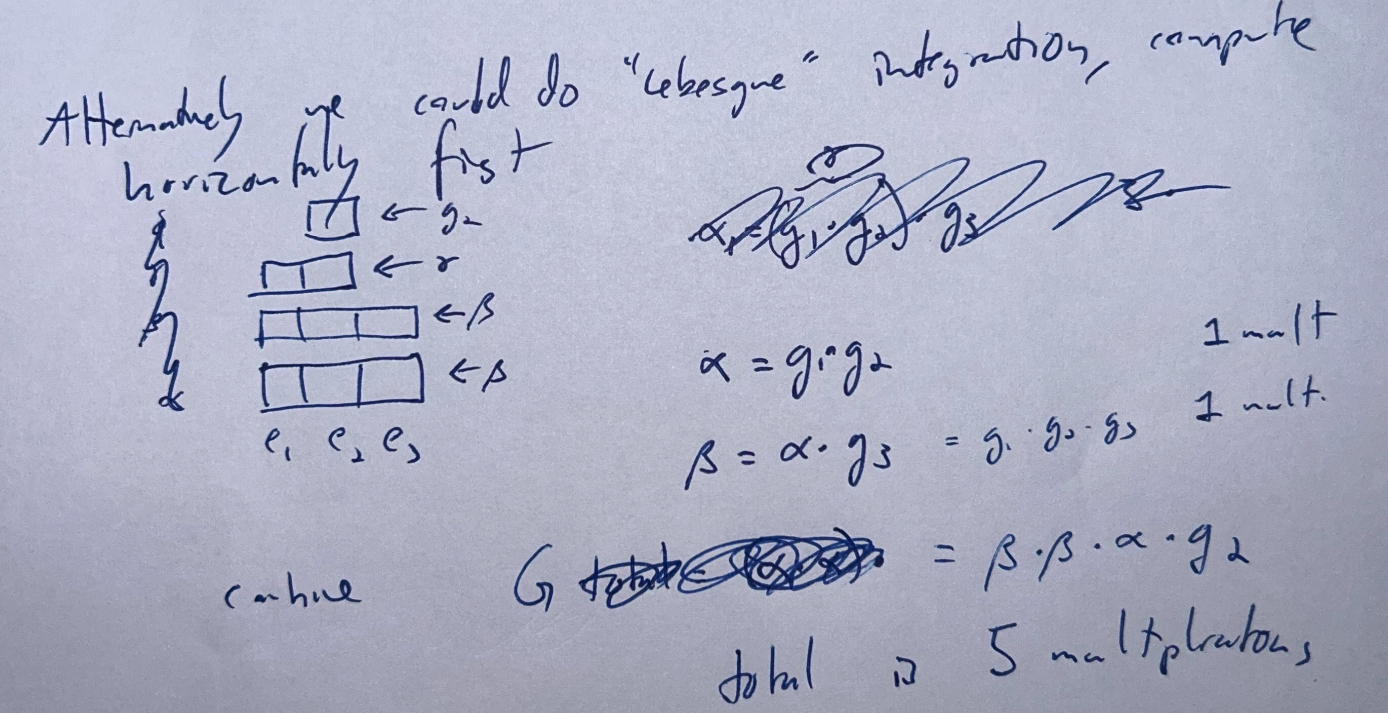 Alternatively we could do "Lebesgue" integration, compute
horizontally first
← g₂
← γ
← β
← β
e₁ e₂ e₃
α = g₁·g₂ 1 mult
β = α·g₃ = g₁·g₂·g₃ 1 mult.
combine G = β·β·α·g₂
total is 5 multiplications